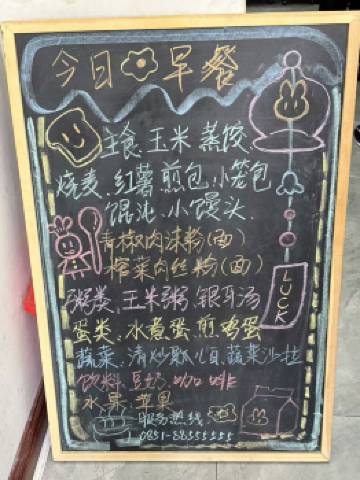 今日早餐
主食、玉米 蒸饺
烧麦、红薯 煎包、小笼包
馄沌、小馒头、
青椒肉沫粉(面)
榨菜肉丝粉(面)
粥类、玉米粥、银耳汤
LUCK
蛋类、水煮蛋、煎鸡蛋
蔬菜、清炒瓢儿白、蔬菜沙拉
饮料、豆奶、咖啡
水果、苹果
服务热线:
0851-88555555